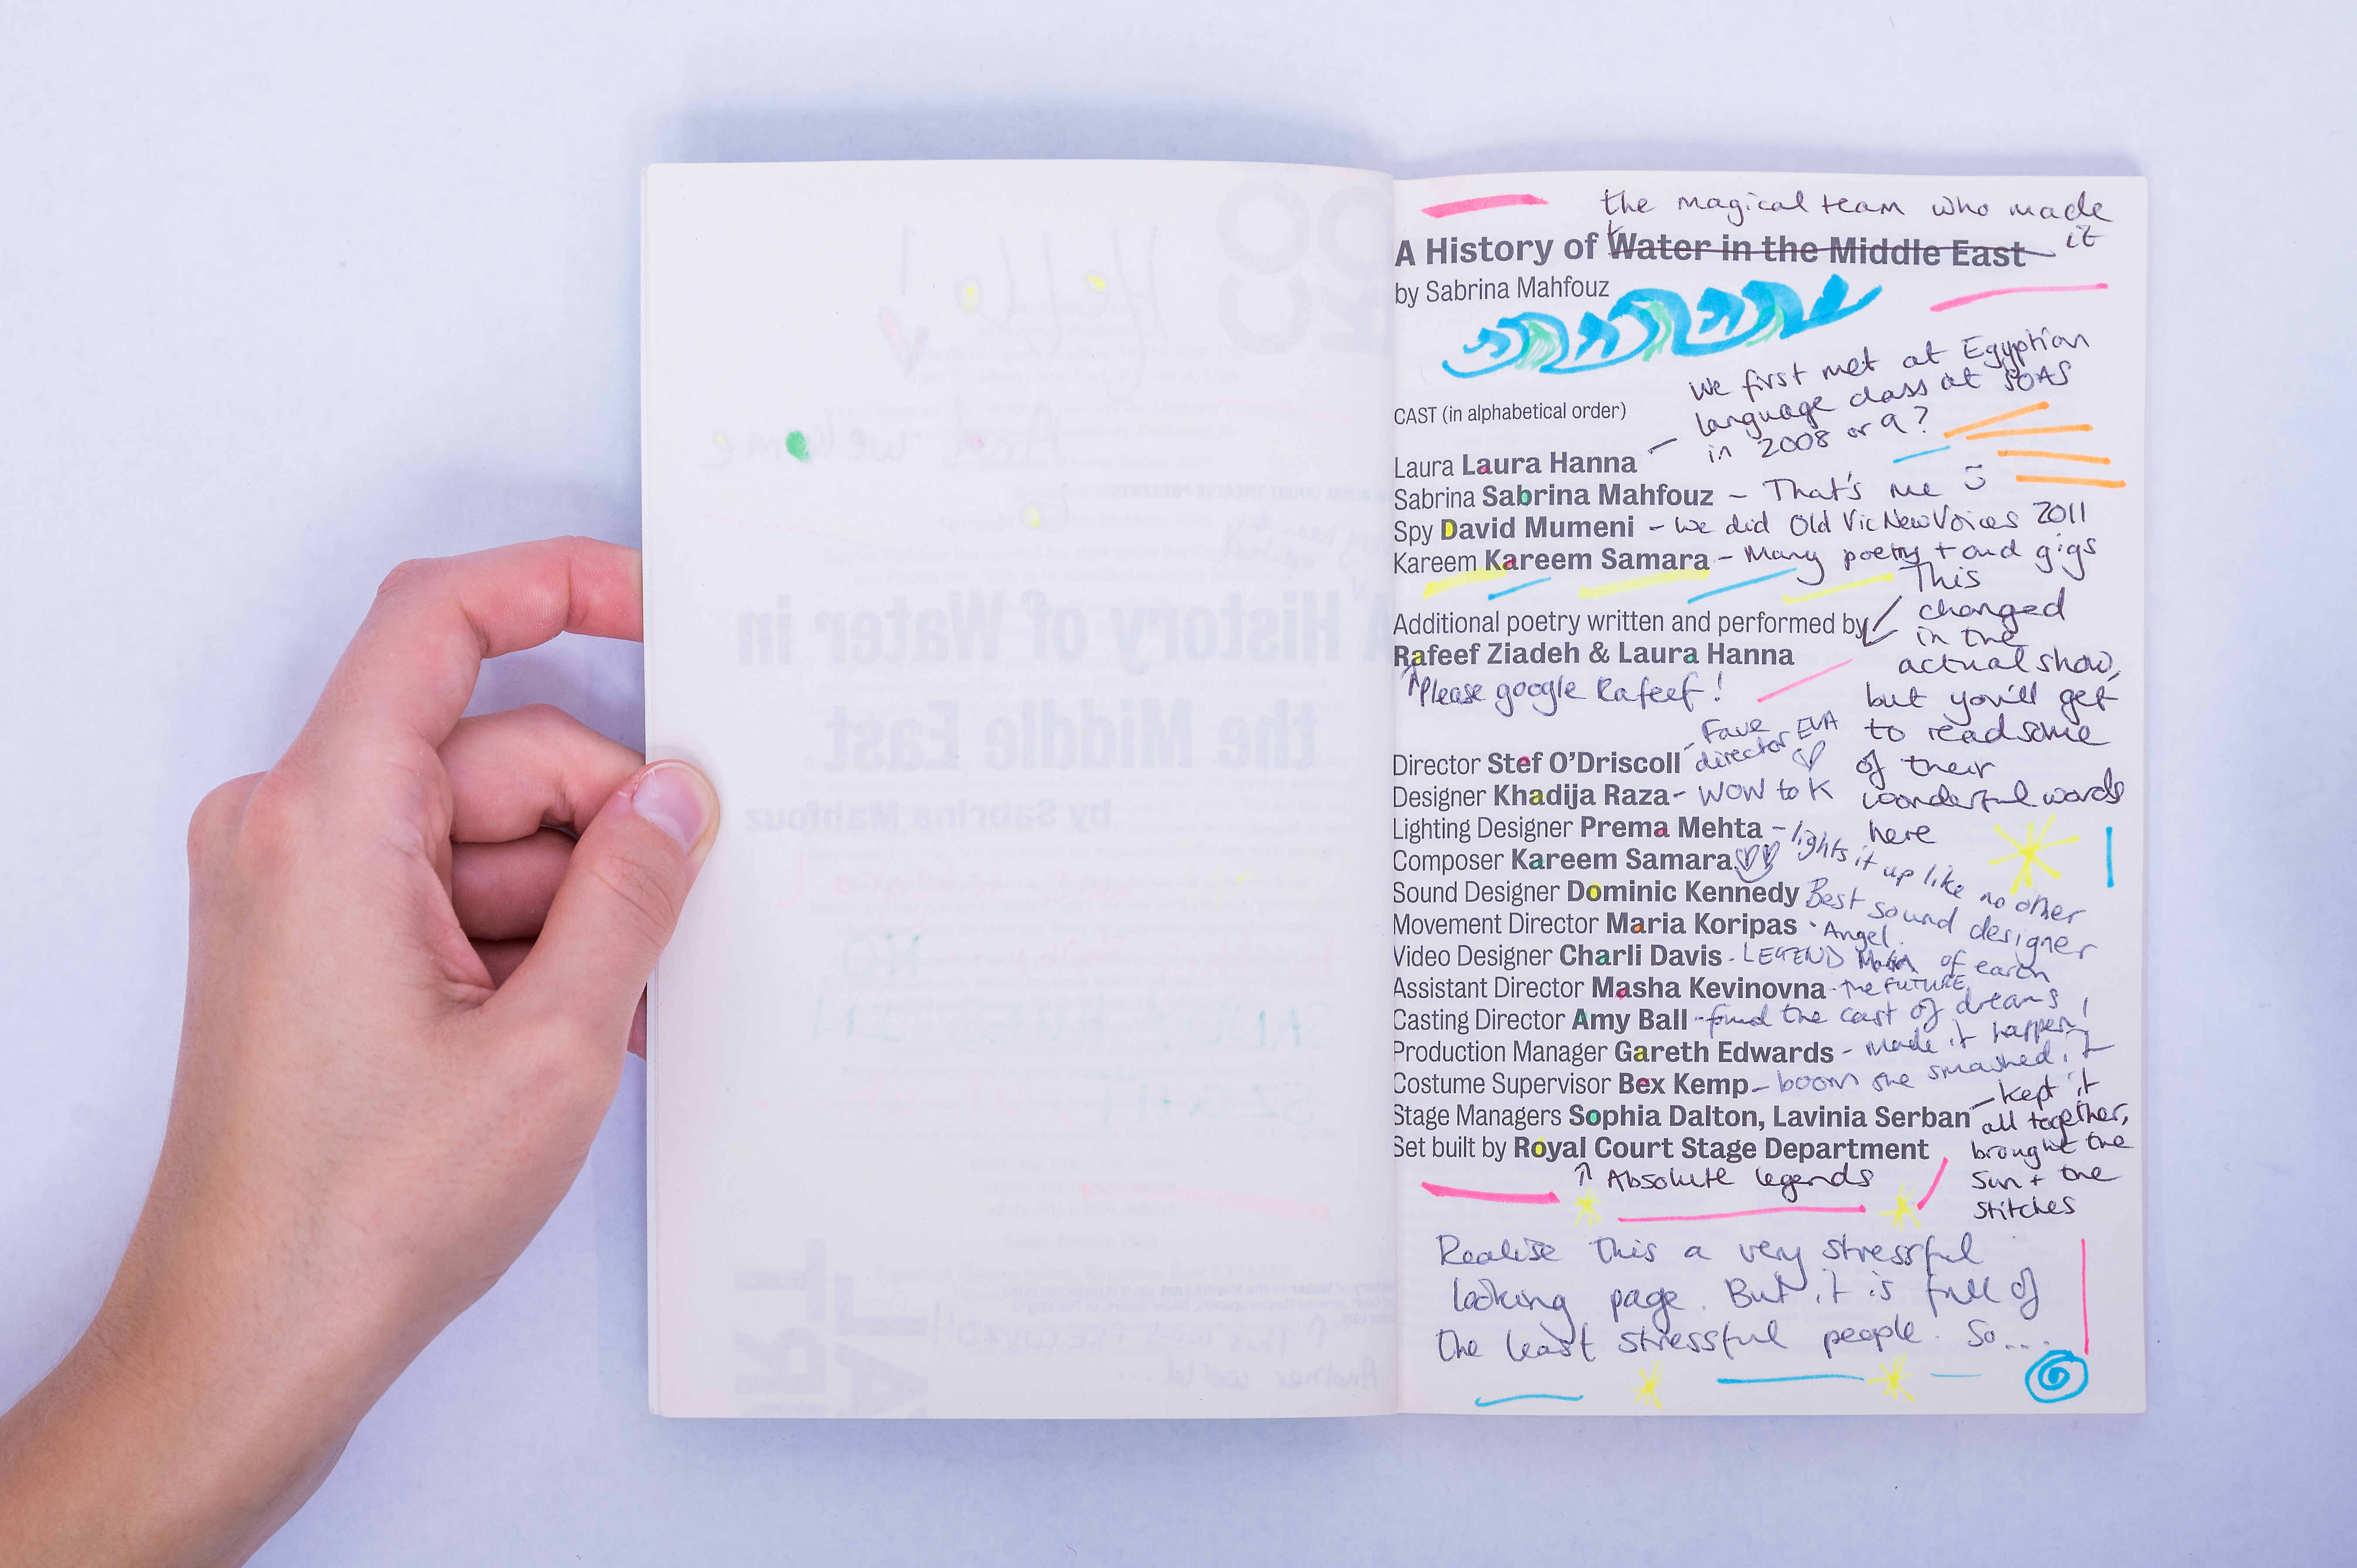 the magical team who made it
A History of Water in the Middle East
by Sabrina Mahfouz
We first met at Egyptian
language class at SOAS
in 2008 or 9?
CAST (in alphabetical order)
Laura Laura Hanna
Sabrina Sabrina Mahfouz - That's me
Spy David Mumeni - We did Old Vic New Voices 2011
Kareem Kareem Samara - Many poetry + oud gigs
Additional poetry written and performed by
Rafeef Ziadeh & Laura Hanna
↑ Please google Rafeef!
This
changed
in the
actual show,
but you'll get
to read some
of their
wonderful words
here
Director Stef O'Driscoll - Fave director EVA
Designer Khadija Raza - WOW to K
Lighting Designer Prema Mehta - lights it up like no other
Composer Kareem Samara
Sound Designer Dominic Kennedy Best sound designer of earth
Movement Director Maria Koripas · Angel
Video Designer Charli Davis - LEGEND
Assistant Director Masha Kevinovna - the FUTURE
Casting Director Amy Ball - find the cast of dreams!
Production Manager Gareth Edwards - made it happen
Costume Supervisor Bex Kemp - boom she smashed it
Stage Managers Sophia Dalton, Lavinia Serban - kept it
all together,
brought the
sun + the
stitches
Set built by Royal Court Stage Department
↑ Absolute legends
Realise this a very stressful
looking page. But it is full of
the least stressful people. So...